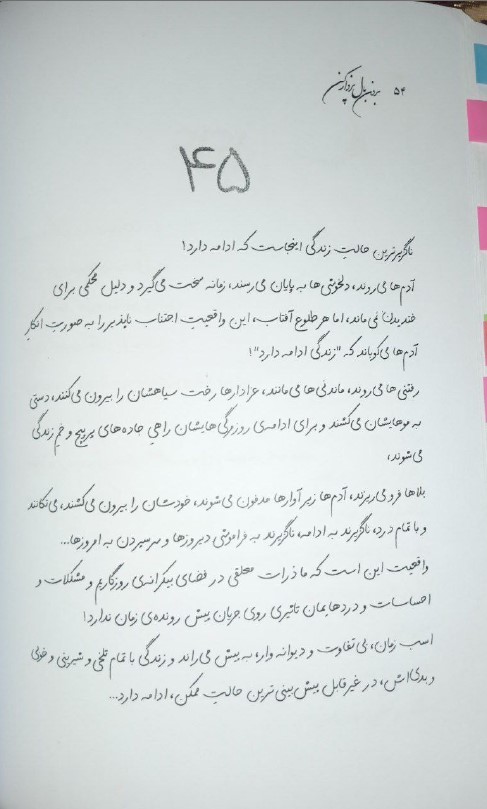 ۵۴ بدون بال پرواز کن
۴۵
ناگزیرترین حالتِ زندگی اینجاست که ادامه دارد!
آدم‌ها می‌روند، دلخوشی‌ها به پایان می‌رسند، زمانه سخت می‌گیرد و دلیل محکمی برای
خندیدن نمی‌ماند، اما هر طلوع آفتاب، این واقعیت اجتناب ناپذیر را به صورتِ انکارِ
آدم‌ها می‌کوباند که "زندگی ادامه دارد"!
رفتنی‌ها می‌روند، ماندنی‌ها می‌مانند، عزادارها رخت سیاهشان را بیرون می‌کنند، دستی
به موهایشان می‌کشند و برای ادامه‌ی روزمرگی‌هایشان راهیِ جاده‌های پر پیچ و خمِ زندگی
می‌شوند،
بلاها فرو می‌ریزند، آدم‌ها زیر آوارها مدفون می‌شوند، خودشان را بیرون می‌کشند، می‌تکانند
و با تمام درد، ناگزیرند به ادامه، ناگزیرند به فراموشی دیروزها و سر سپردن به امروزها...
واقعیت این است که ما ذرات معلقی در فضای بیکرانه‌ی روزگاریم و مشکلات و
احساسات و دردهایمان تاثیری روی جریان پیش رونده‌ی زمان ندارد!
اسب زمان، بی تفاوت و دیوانه وار، به پیش می‌راند و زندگی با تمام تلخی و شیرینی و خوبی
و بدی‌اش، در غیر قابل پیش بینی ترین حالتِ ممکن، ادامه دارد...